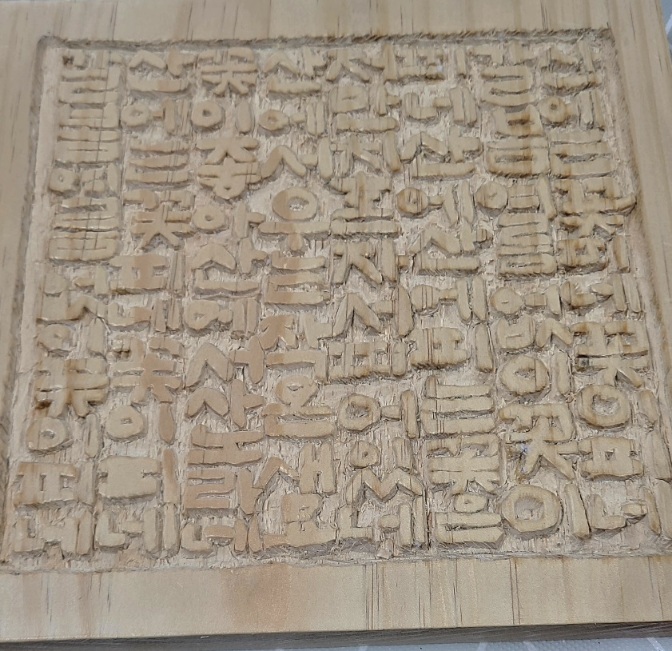 산에는꽃피네꽃이피네
갈봄여름없이꽃이
피네산에산에피는꽃은
저만치혼자서피어있네
산에서우는작은새
꽃이좋아산에서사노라네
산에는꽃피네꽃이피네
갈봄여름없이꽃이피네